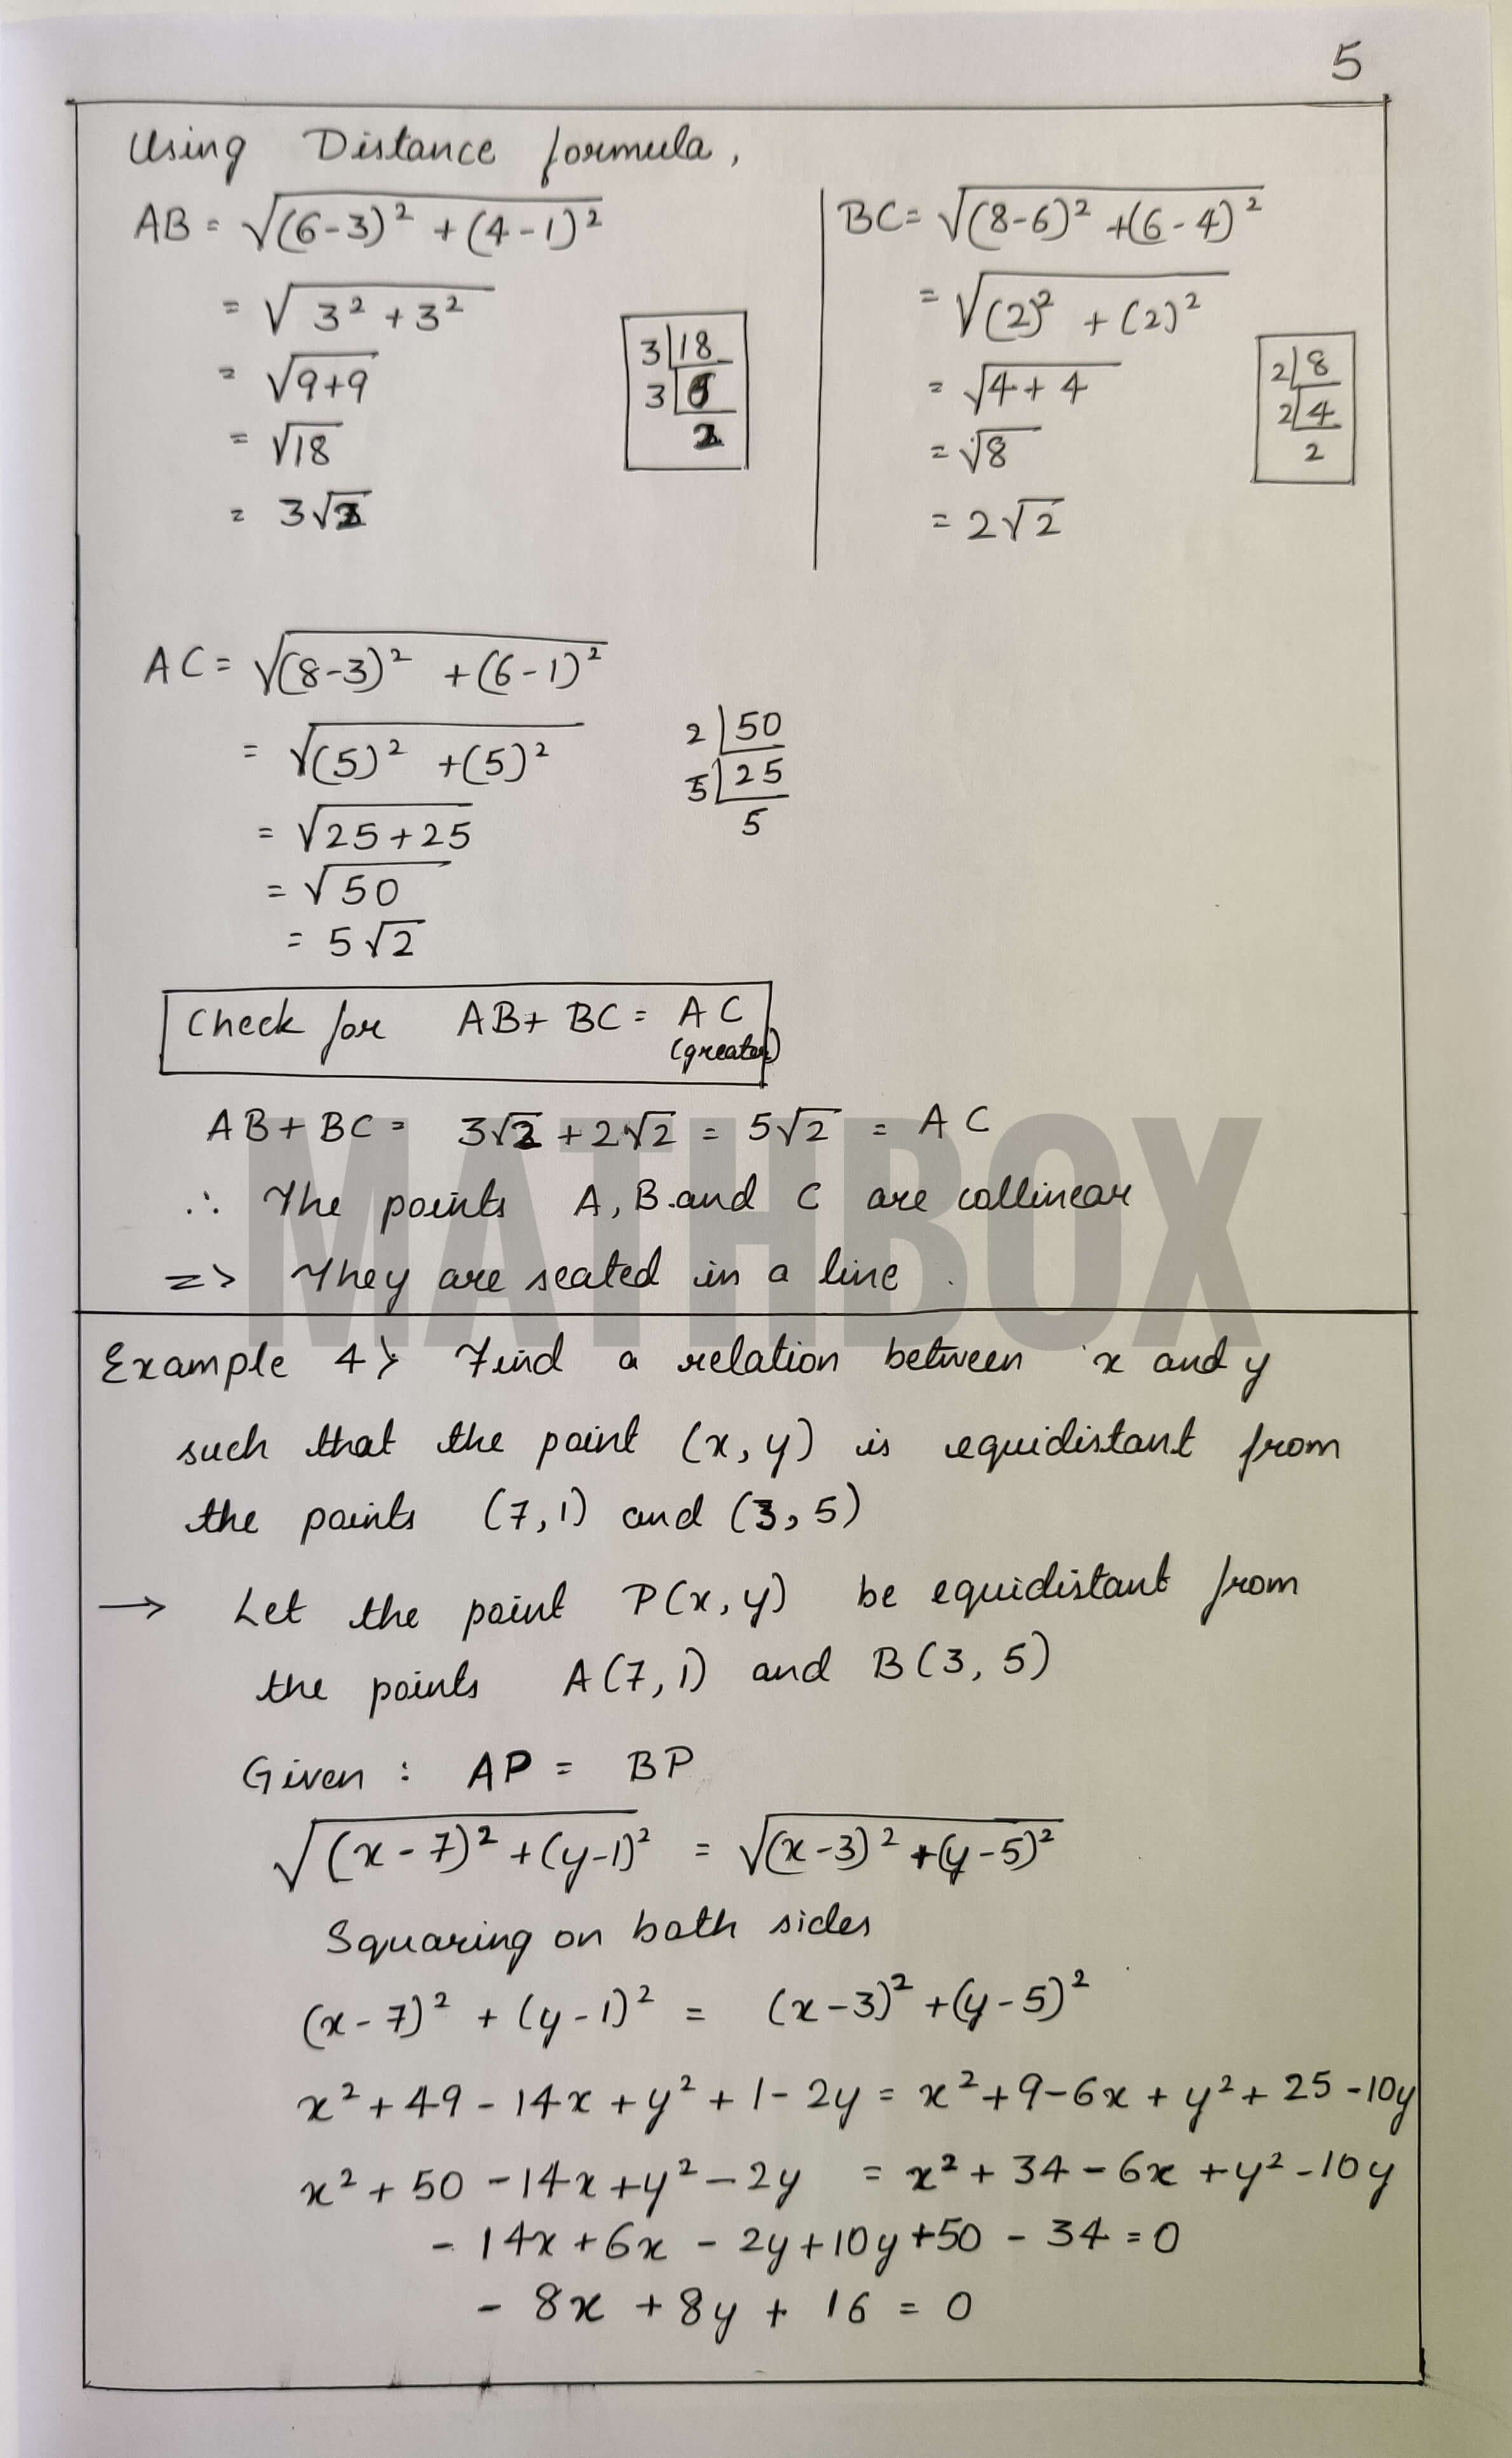 5
Using Distance formula,
AB = √((6-3)² + (4-1)²)
= √(3² + 3²)
= √(9+9)
= √18
= 3√2
3|18
3|6
2
BC = √((8-6)² + (6-4)²)
= √((2)² + (2)²)
= √(4+4)
= √8
= 2√2
2|8
2|4
2
AC = √((8-3)² + (6-1)²)
= √((5)² + (5)²)
= √(25+25)
= √50
= 5√2
2|50
5|25
5
Check for AB + BC = AC
(greater)
AB + BC = 3√2 + 2√2 = 5√2 = AC
∴ The points A, B and C are collinear
=> They are seated in a line.
MATHBOX
Example 4> Find a relation between x and y
such that the point (x, y) is equidistant from
the points (7, 1) and (3, 5)
→ Let the point P(x, y) be equidistant from
the points A(7, 1) and B(3, 5)
Given : AP = BP
√((x-7)² + (y-1)²) = √((x-3)² + (y-5)²)
Squaring on both sides
(x-7)² + (y-1)² = (x-3)² + (y-5)²
x² + 49 - 14x + y² + 1 - 2y = x² + 9 - 6x + y² + 25 - 10y
x² + 50 - 14x + y² - 2y = x² + 34 - 6x + y² - 10y
- 14x + 6x - 2y + 10y + 50 - 34 = 0
- 8x + 8y + 16 = 0